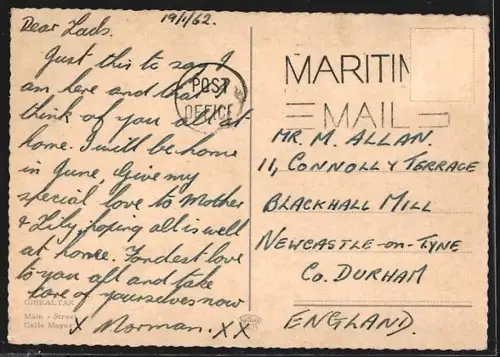 19/1/62.
Dear Lads.
Just this to say I
am here and that I
think of you all at
home. I will be home
in June, Give my
special love to Mother
& Lily, hoping all is well
at home. Fondest love
to you all and take
care of yourselves now
X Norman. XX
GIBRALTAR
Main - Street
Calle Mayor
POST
OFFICE
MARITIM
MAIL
MR. M. ALLAN.
11, CONNOLLY TERRACE
BLACKHALL MILL
NEWCASTLE-ON-TYNE
CO. DURHAM
ENGLAND.